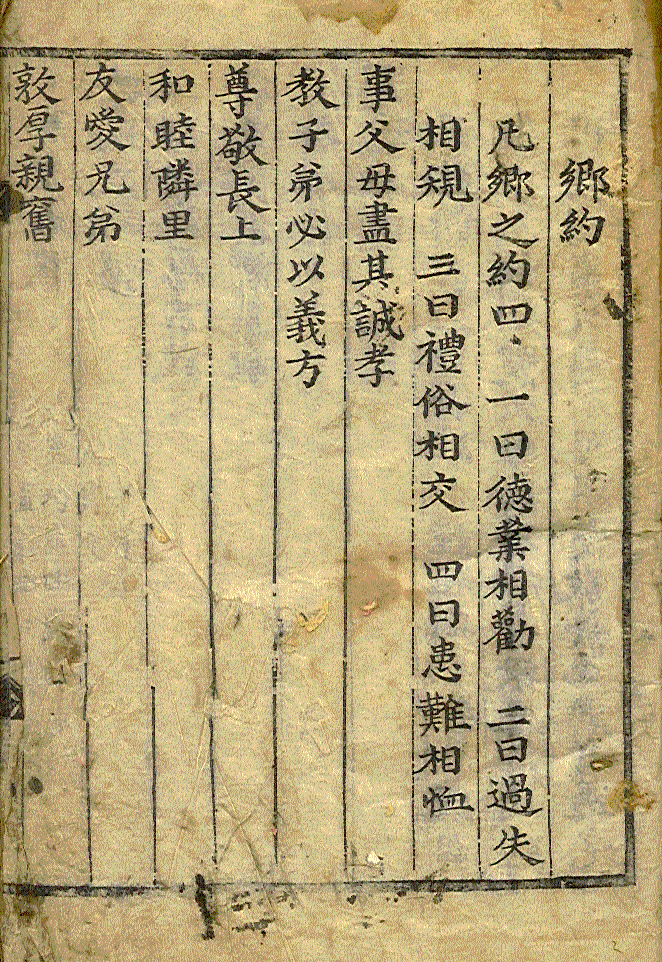 鄉約
凡鄉之約四 一曰德業相勸 二曰過失
相規 三曰禮俗相交 四曰患難相恤
事父母盡其誠孝
教子弟必以義方
尊敬長上
和睦隣里
友愛兄弟
敦厚親舊